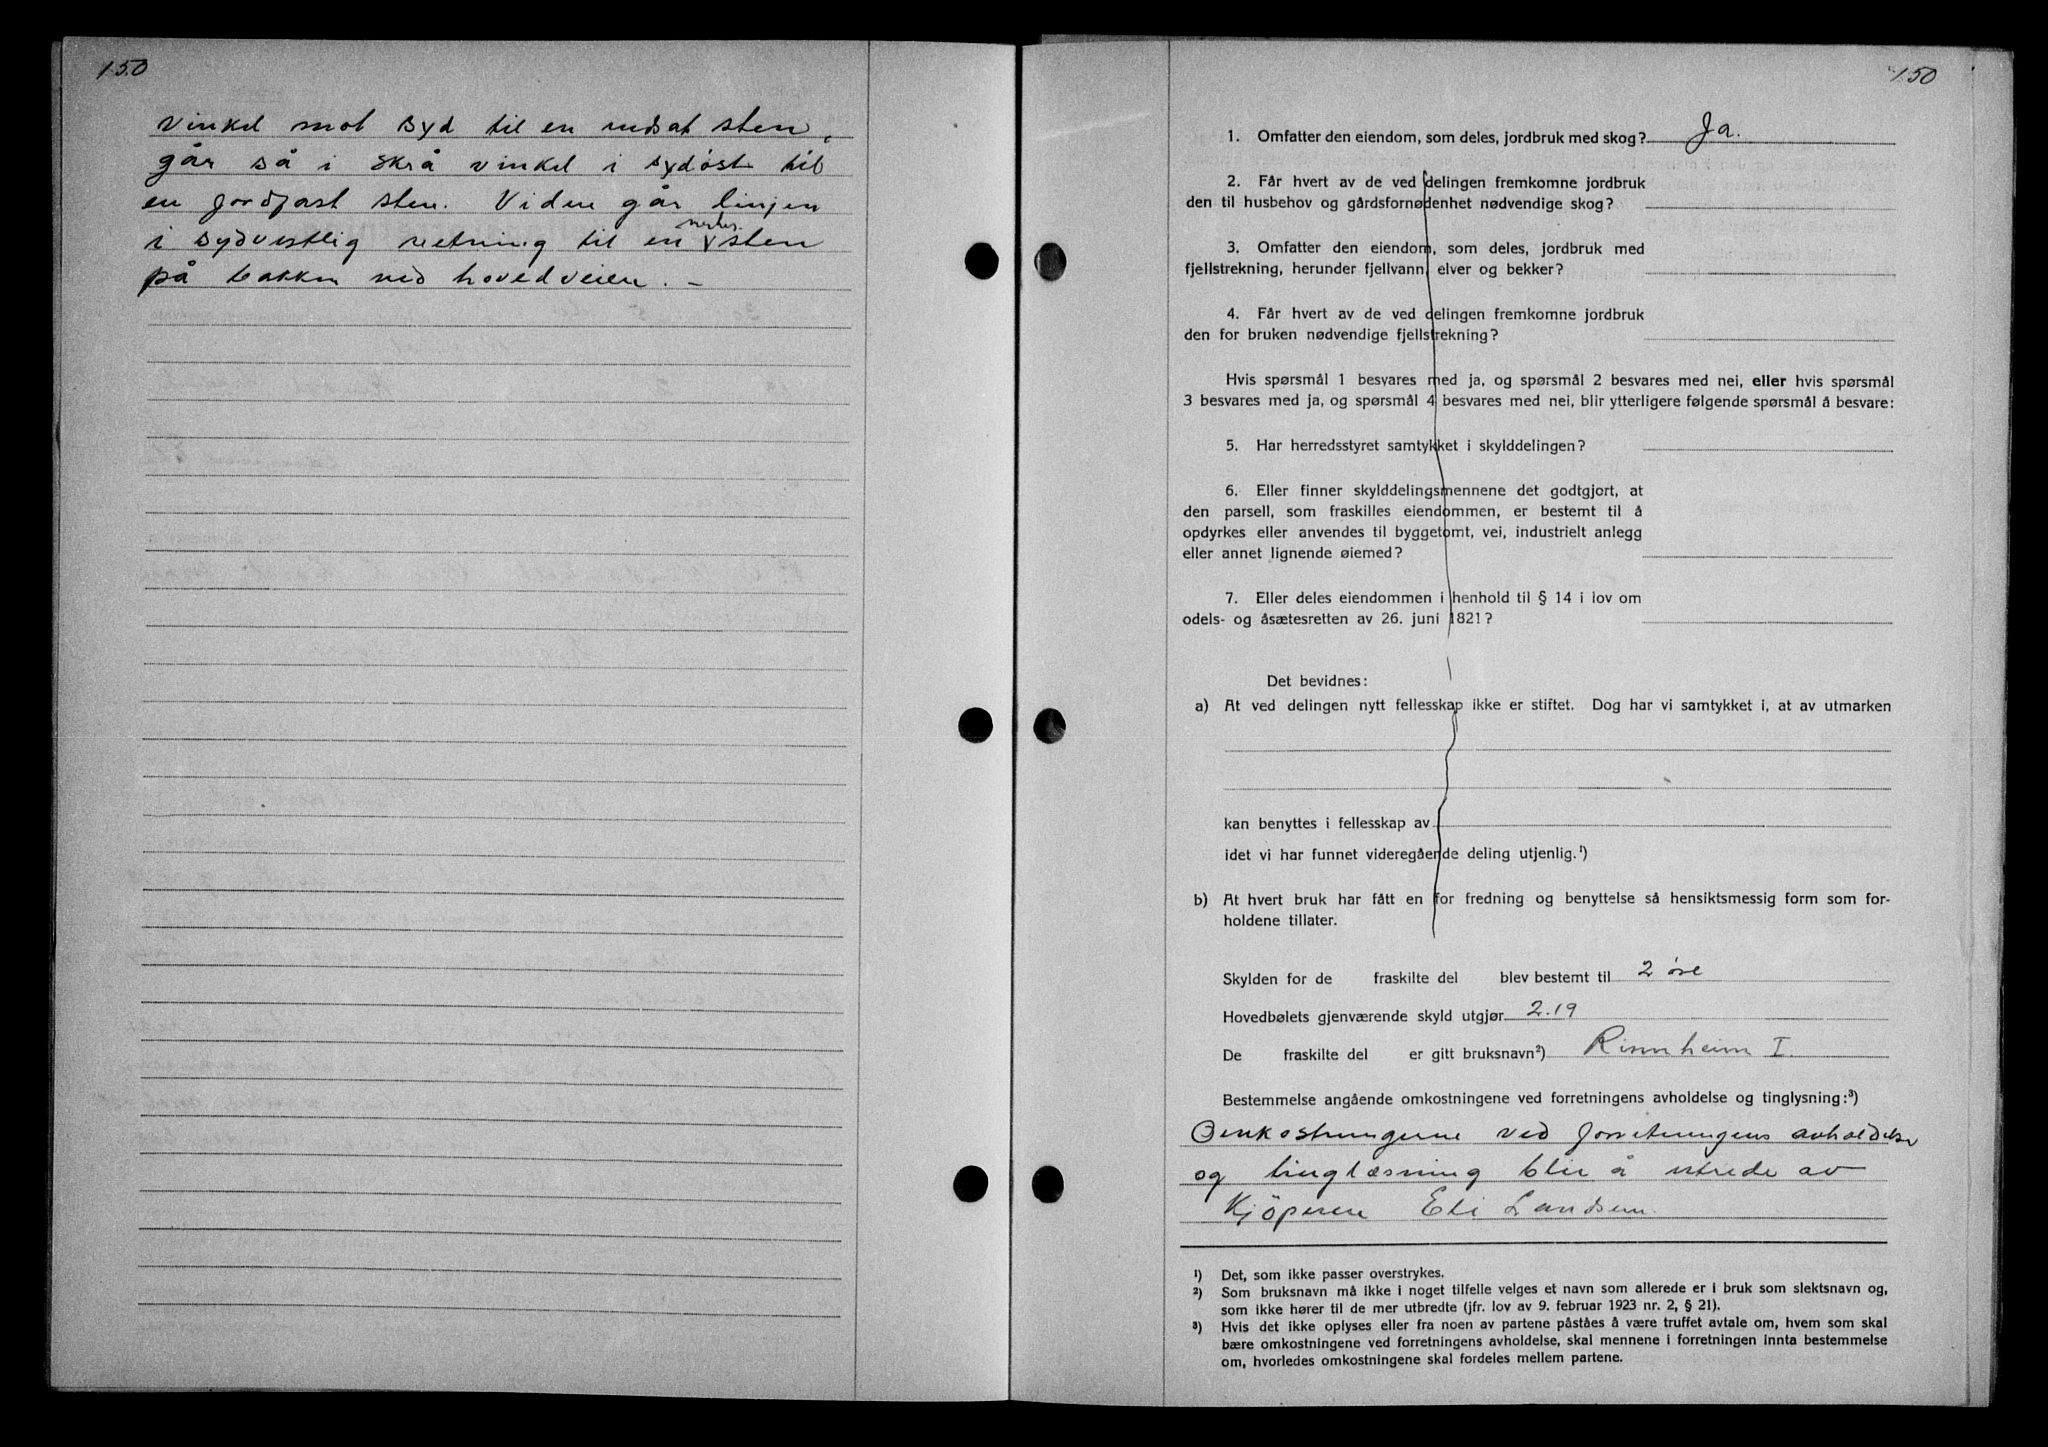 150
vinkel mot syd til en nedsat sten,
går så i skrå vinkel i sydöst til
en jordfast sten. Videre går linjen
i sydvestlig retning til en sten
på bakken ved hovedveien. –
150
1. Omfatter den eiendom, som deles, jordbruk med skog? Ja.
2. Får hvert av de ved delingen fremkomne jordbruk
den til husbehov og gårdsfornødenhet nødvendige skog?
3. Omfatter den eiendom, som deles, jordbruk med
fjellstrekning, herunder fjellvann, elver og bekker?
4. Får hvert av de ved delingen fremkomne jordbruk
den for bruken nødvendige fjellstrekning?
Hvis spørsmål 1 besvares med ja, og spørsmål 2 besvares med nei, eller hvis spørsmål
3 besvares med ja, og spørsmål 4 besvares med nei, blir ytterligere følgende spørsmål å besvare:
5. Har herredsstyret samtykket i skylddelingen?
6. Eller finner skylddelingsmennene det godtgjort, at
den parsell, som fraskilles eiendommen, er bestemt til å
opdyrkes eller anvendes til byggetomt, vei, industrielt anlegg
eller annet lignende øiemed?
7. Eller deles eiendommen i henhold til § 14 i lov om
odels- og åsætesretten av 26. juni 1821?
Det bevidnes:
a) At ved delingen nytt fellesskap ikke er stiftet. Dog har vi samtykket i, at av utmarken
kan benyttes i fellesskap av
idet vi har funnet videregående deling utjenlig.¹)
b) At hvert bruk har fått en for fredning og benyttelse så hensiktsmessig form som for-
holdene tillater.
Skylden for de fraskilte del blev bestemt til 2 öre
Hovedbølets gjenværende skyld utgjør 2.19
De fraskilte del er gitt bruksnavn²) Rinnheim I.
Bestemmelse angående omkostningene ved forretningens avholdelse og tinglysning:³)
Omkostningerne ved forretningens avholdelse
og tinglæsning blir å utrede av
Kjöperen Eli Landsem.
¹) Det, som ikke passer overstrykes.
²) Som bruksnavn må ikke i noget tilfelle velges et navn som allerede er i bruk som slektsnavn og,
som ikke hører til de mer utbredte (jfr. lov av 9. februar 1923 nr. 2, § 21).
³) Hvis det ikke oplyses eller fra noen av partene påstås å være truffet avtale om, hvem som skal
bære omkostningene ved forretningens avholdelse, skal mennene i forretningen innta bestemmelse
om, hvorledes omkostningene skal fordeles mellem partene.